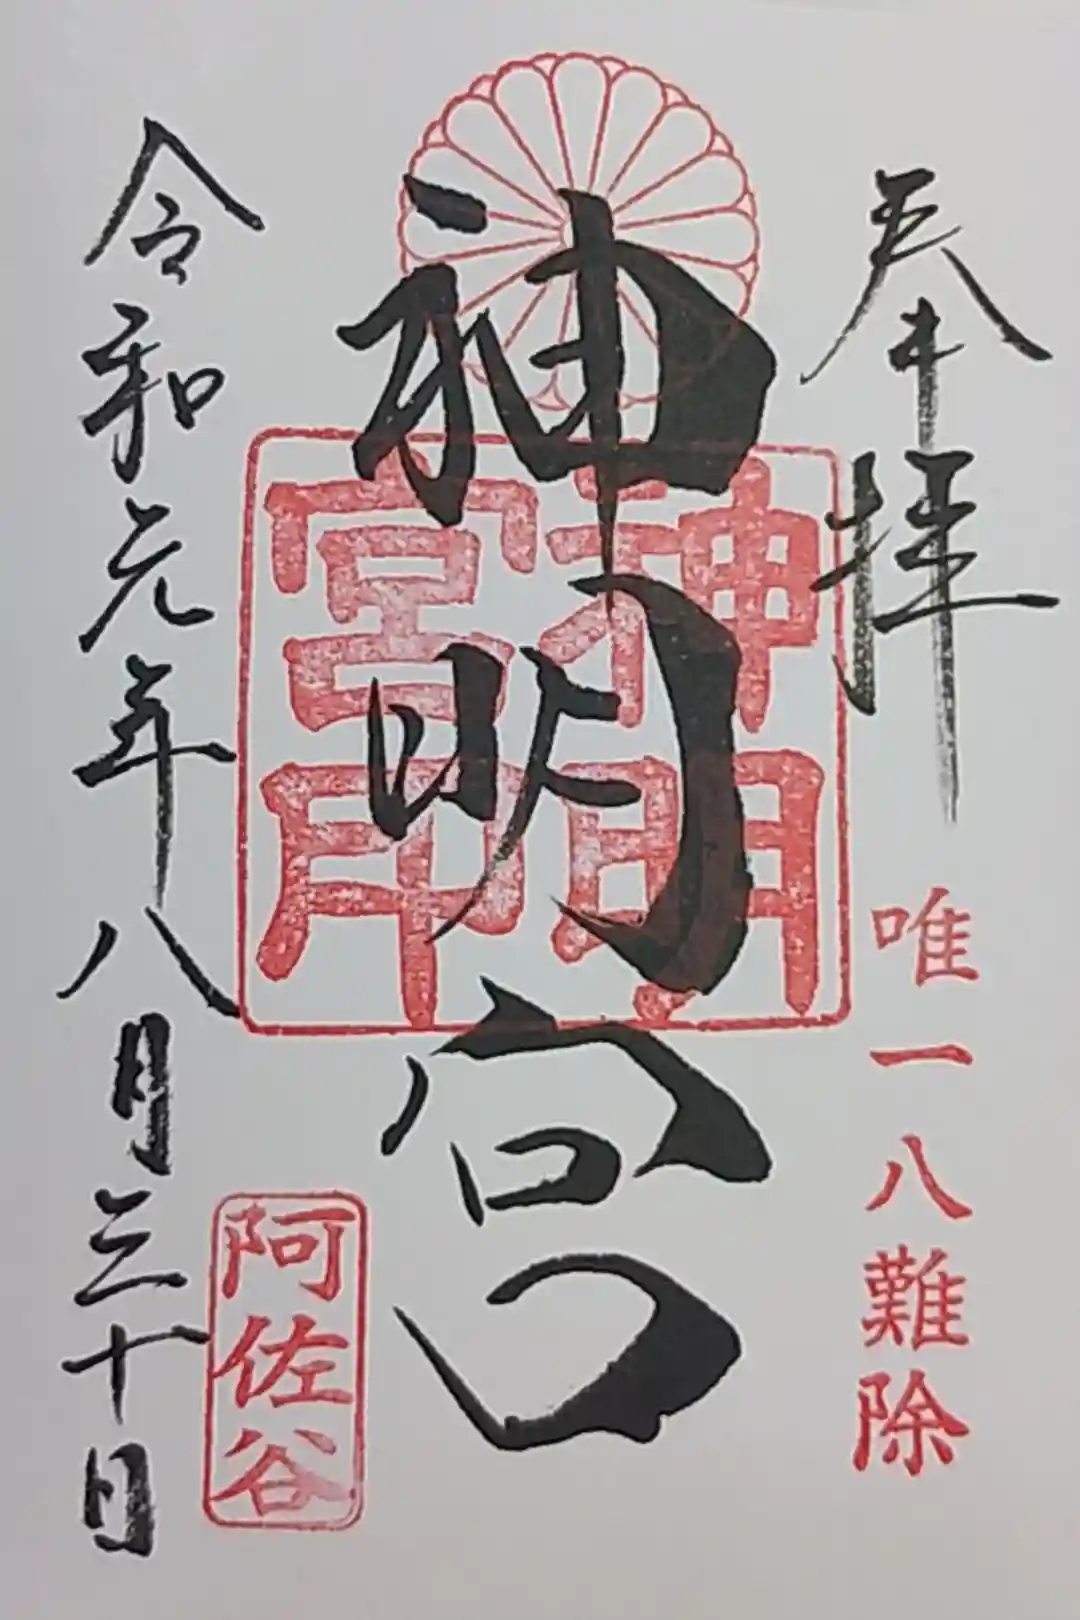 奉拝
唯一八難除
神明宮
神明
宮印
阿佐谷
令和元年八月三十日